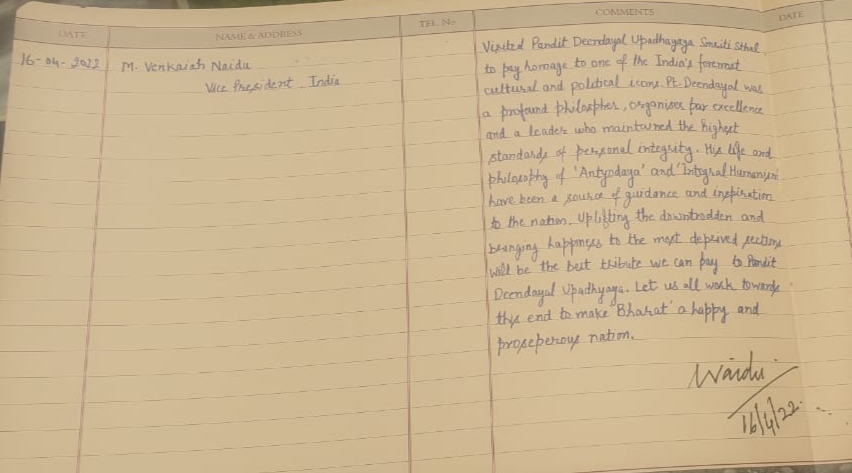 DATE NAME & ADDRESS TEL. No COMMENTS DATE
16-04-2022 M. Venkaiah Naidu
Vice President. India
Visited Pandit Deendayal Upadhayaya Smriti Sthal
to pay homage to one of the India's foremost
cultural and political icons. Pt. Deendayal was
a profound philospher, organiser par excellence
and a leader who maintained the highest
standards of personal integrity. His life and
philosophy of 'Antyodaya' and 'Integral Humanism
have been a source of guidance and inspiration
to the nation. Uplifting the downtrodden and
bringing happiness to the most deprived sections
will be the best tribute we can pay to Pandit
Deendayal Upadhyaya. Let us all work towards
this end to make 'Bharat' a happy and
prosperous nation.
Naidu
16/4/22.